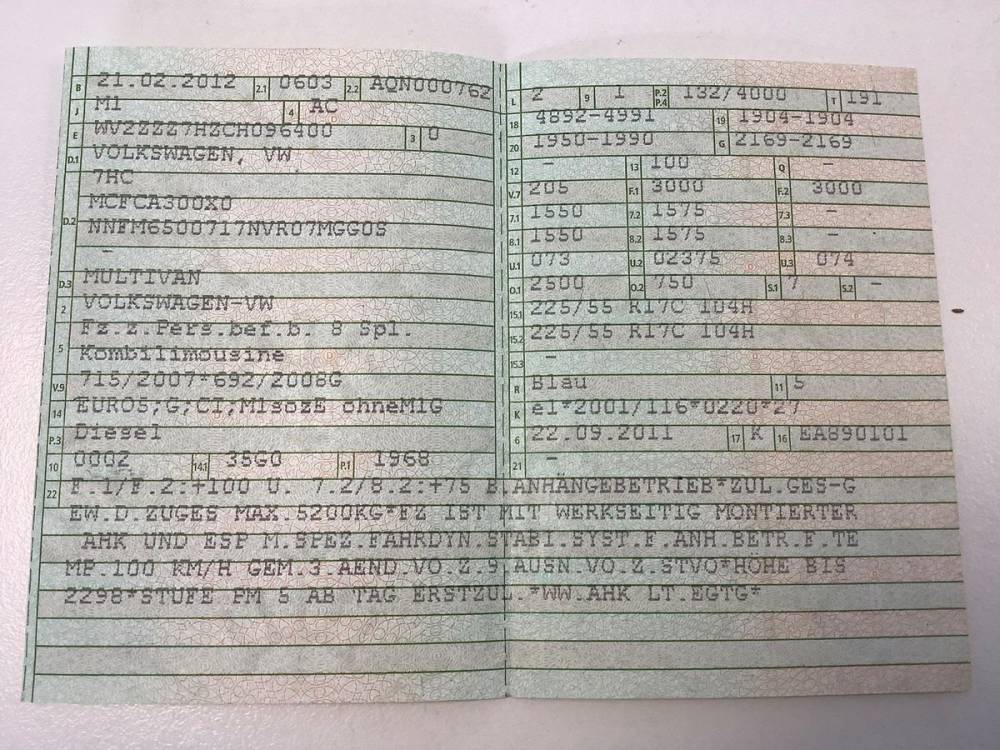 B 21.02.2012 2.1 0603 2.2 AQN000762
J M1 4 AC
E WV2ZZZ7HZCH096400 3 0
D.1 VOLKSWAGEN, VW
7HC
D.2 MCFCA300X0
NNFM6500717NVR07MGG0S
-
D.3 MULTIVAN
2 VOLKSWAGEN-VW
5 Fz.z.Pers.bef.b. 8 Spl.
Kombilimousine
V.9 715/2007*692/2008G
14 EURO5;G;CI;M1sozE ohneM1G
P.3 Diesel
10 0002 14.1 35G0 P.1 1968
L 2 9 1 P.2 P.4 132/4000 T 191
18 4892-4991 19 1904-1904
20 1950-1990 G 2169-2169
12 - 13 100 Q -
V.7 205 F.1 3000 F.2 3000
7.1 1550 7.2 1575 7.3 -
8.1 1550 8.2 1575 8.3 -
U.1 073 U.2 02375 U.3 074
O.1 2500 O.2 750 S.1 7 S.2 -
15.1 225/55 R17C 104H
15.2 225/55 R17C 104H
15.3 -
R Blau 11 5
K e1*2001/116*0220*27
6 22.09.2011 17 K 16 EA890101
21 -
22 F.1/F.2:+100 U. 7.2/8.2:+75 B.ANHÄNGEBETRIEB*ZUL.GES-G
EW.D.ZUGES MAX.5200KG*FZ IST MIT WERKSEITIG MONTIERTER
AHK UND ESP M.SPEZ.FAHRDYN.STABI.SYST.F.ANH.BETR.F.TE
MP.100 KM/H GEM.3.AEND VO.Z.9.AUSN.VO.Z.STVO*HÖHE BIS
2298*STUFE PM 5 AB TAG ERSTZUL.*WW.AHK LT.EGTG*